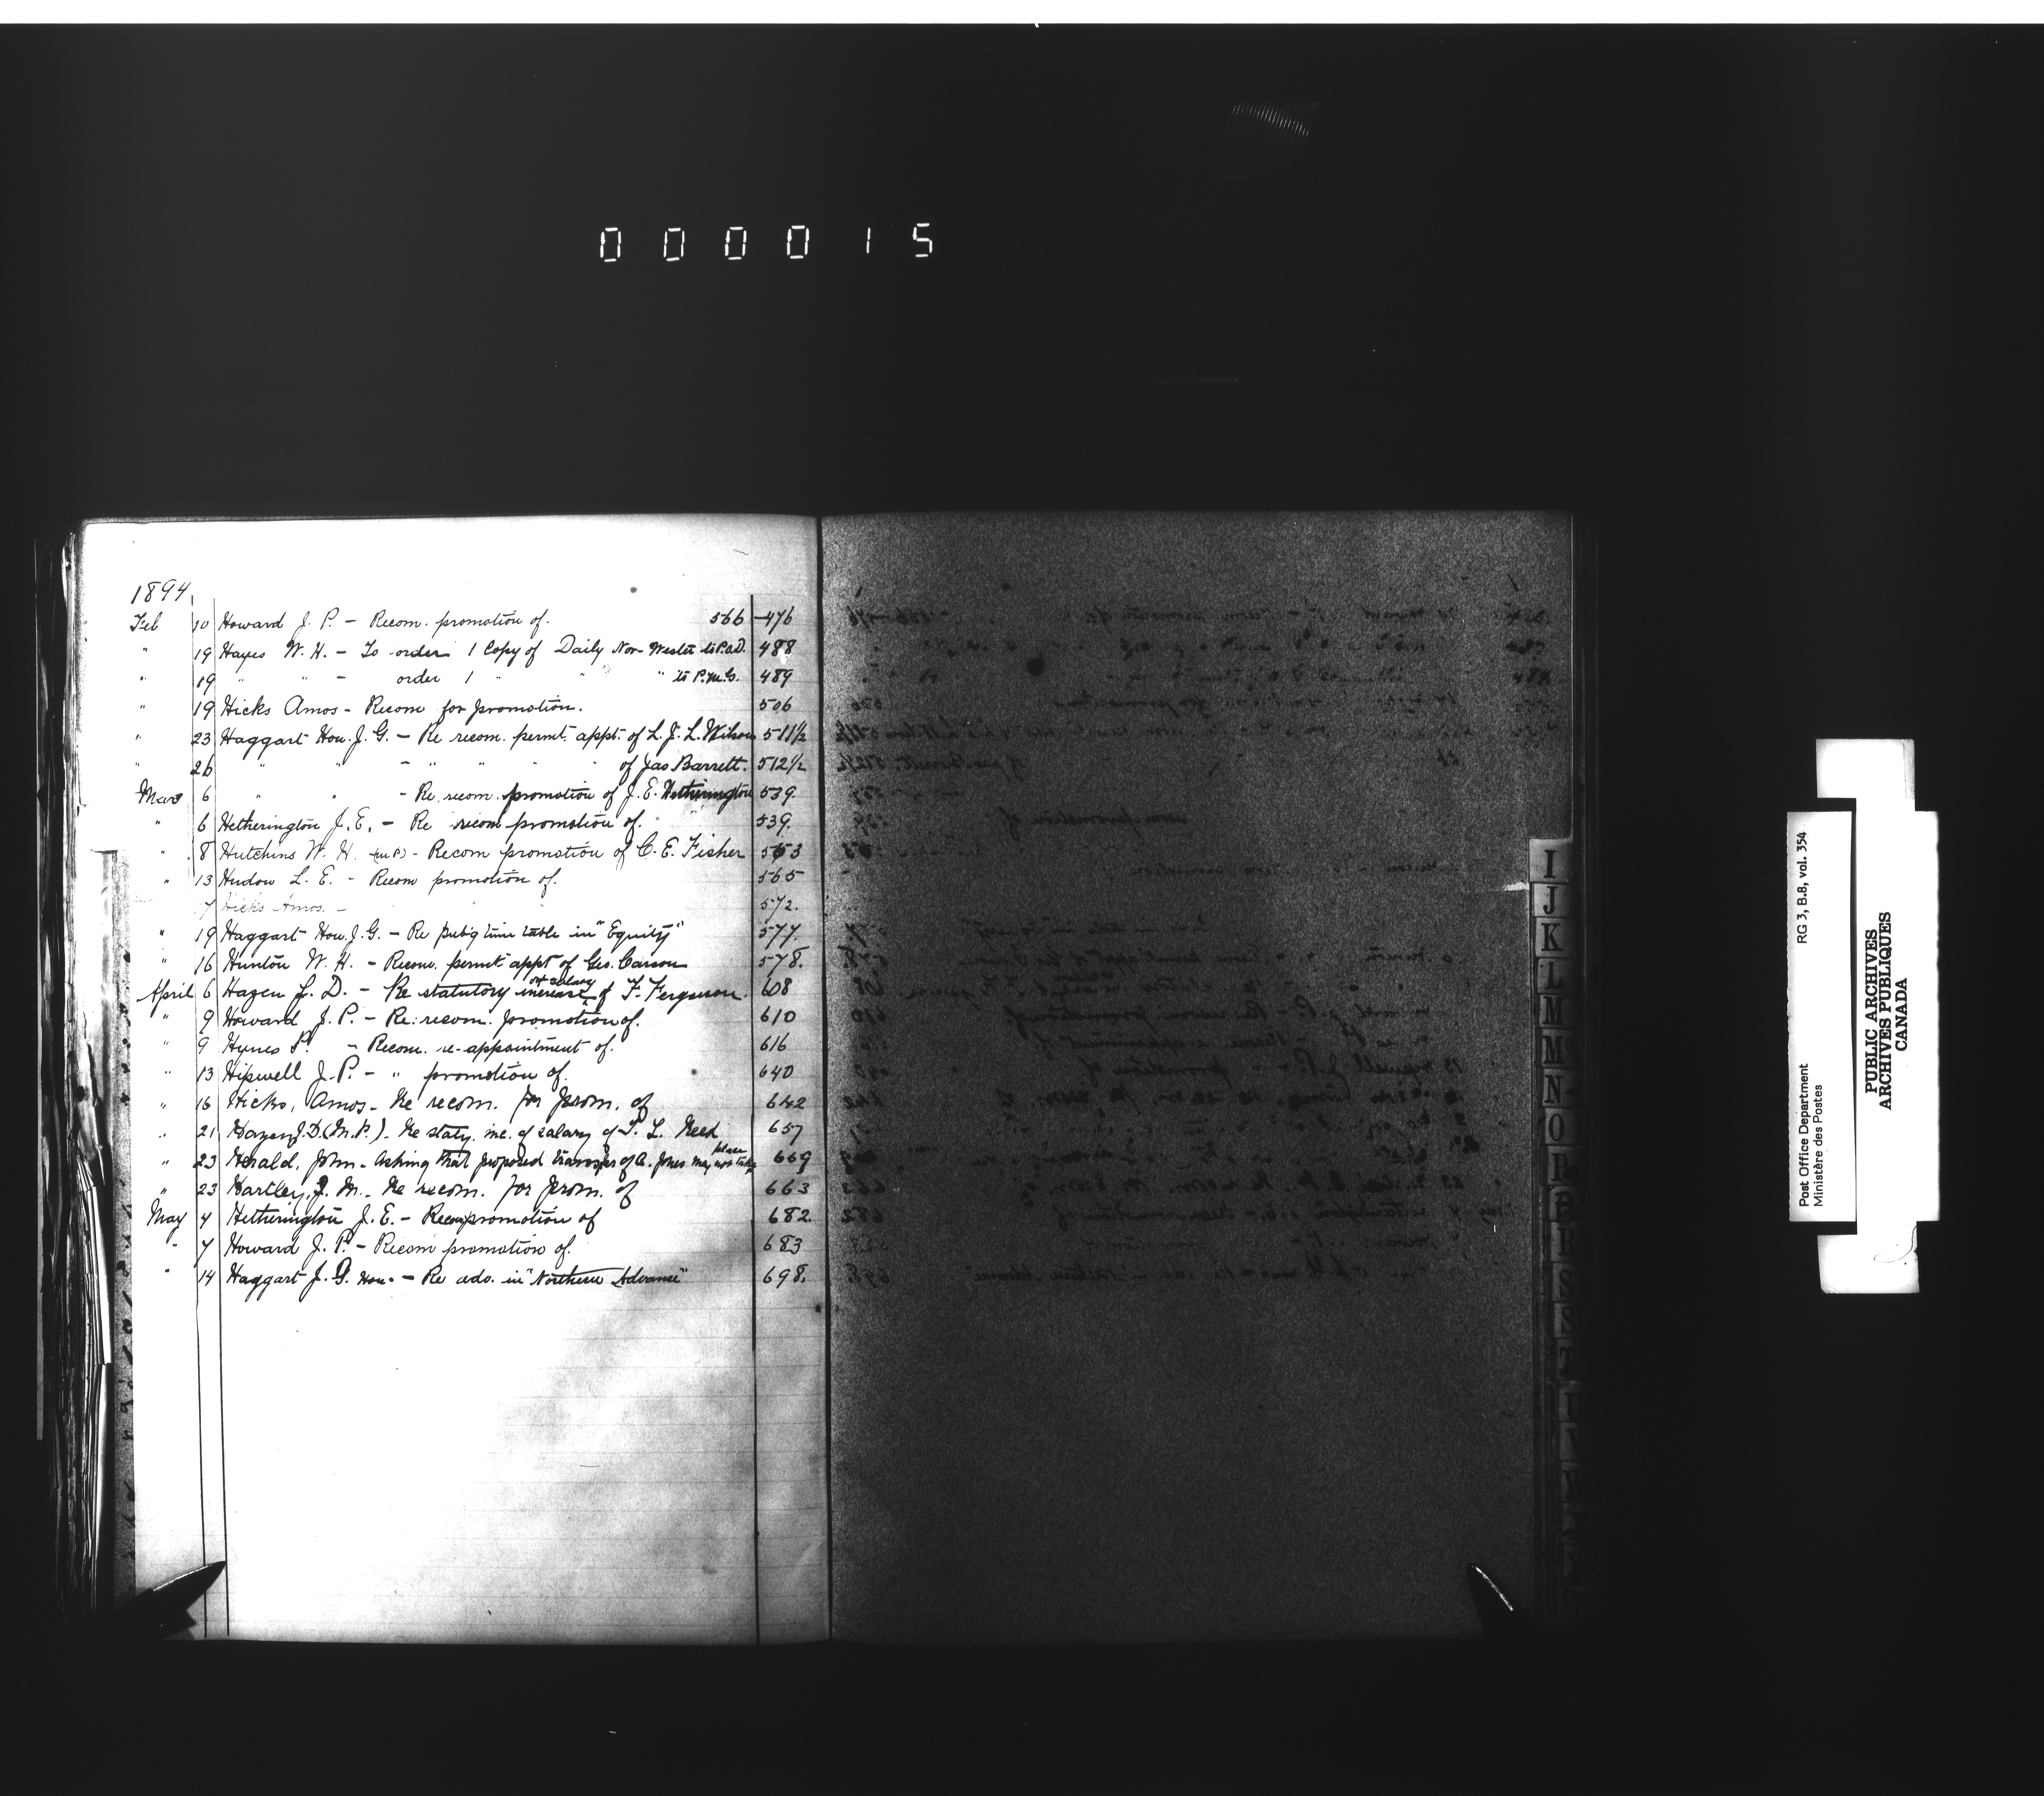 000015
1894
Feb 10 Howard J. P. - Recom. promotion of. 566 - 476
" 19 Hayes W. H. - To order 1 Copy of Daily Nor-Wester to P.O.D. 488
" 19 " " - order 1 " " " to P.M.G. 489
" 19 Hicks Amos - Recom for promotion. 506
" 23 Haggart Hon. J. G. - Re recom. permt. appt. of L. J. L. Wilson 511½
" 26 " " - " " " of Jas Barrett. 512½
Mar 6 " " - Re recom. promotion of J. E. Hetherington 539
" 6 Hetherington J. E. - Re recom promotion of. 539.
" 8 Hutchins W. H. (M.P.) - Recom promotion of C. E. Fisher 553
" 13 Hudon L. E. - Recom promotion of. 565
7 Hicks Amos. - " " 572.
" 19 Haggart Hon. J. G. - Re pub'g time table in "Equity" 577.
" 16 Hunton W. H. - Recom. permt appt of Geo. Carson 578.
April 6 Hazen J. D. - Re statutory increase of salary of F. Ferguson. 608
" 9 Howard J. P. - Re: recom. promotion of. 610
" 9 Hynes P. - Recom. re-appointment of. 616
" 13 Hipwell J. P. - " promotion of. 640
" 16 Hicks, Amos - Re recom. for prom. of 642
" 21 Hazen J. D. (M.P.) - Re staty. inc. of salary of T. L. Reed 657
" 23 Herald, John - Asking that proposed transfer of A. Jones may not take place 669
" 23 Hartley, J. M. - Re recom. for prom. of 663
May 4 Hetherington J. E. - Recom promotion of 682
" 7 Howard J. P. - Recom promotion of. 683
" 14 Haggart J. G. Hon. - Re adv. in "Northern Advance" 698.
I
J
K
L
M
M
N
O
P
R
R
S
S
T
Post Office Department RG 3, B.8, vol. 354
Ministère des Postes
PUBLIC ARCHIVES
ARCHIVES PUBLIQUES
CANADA